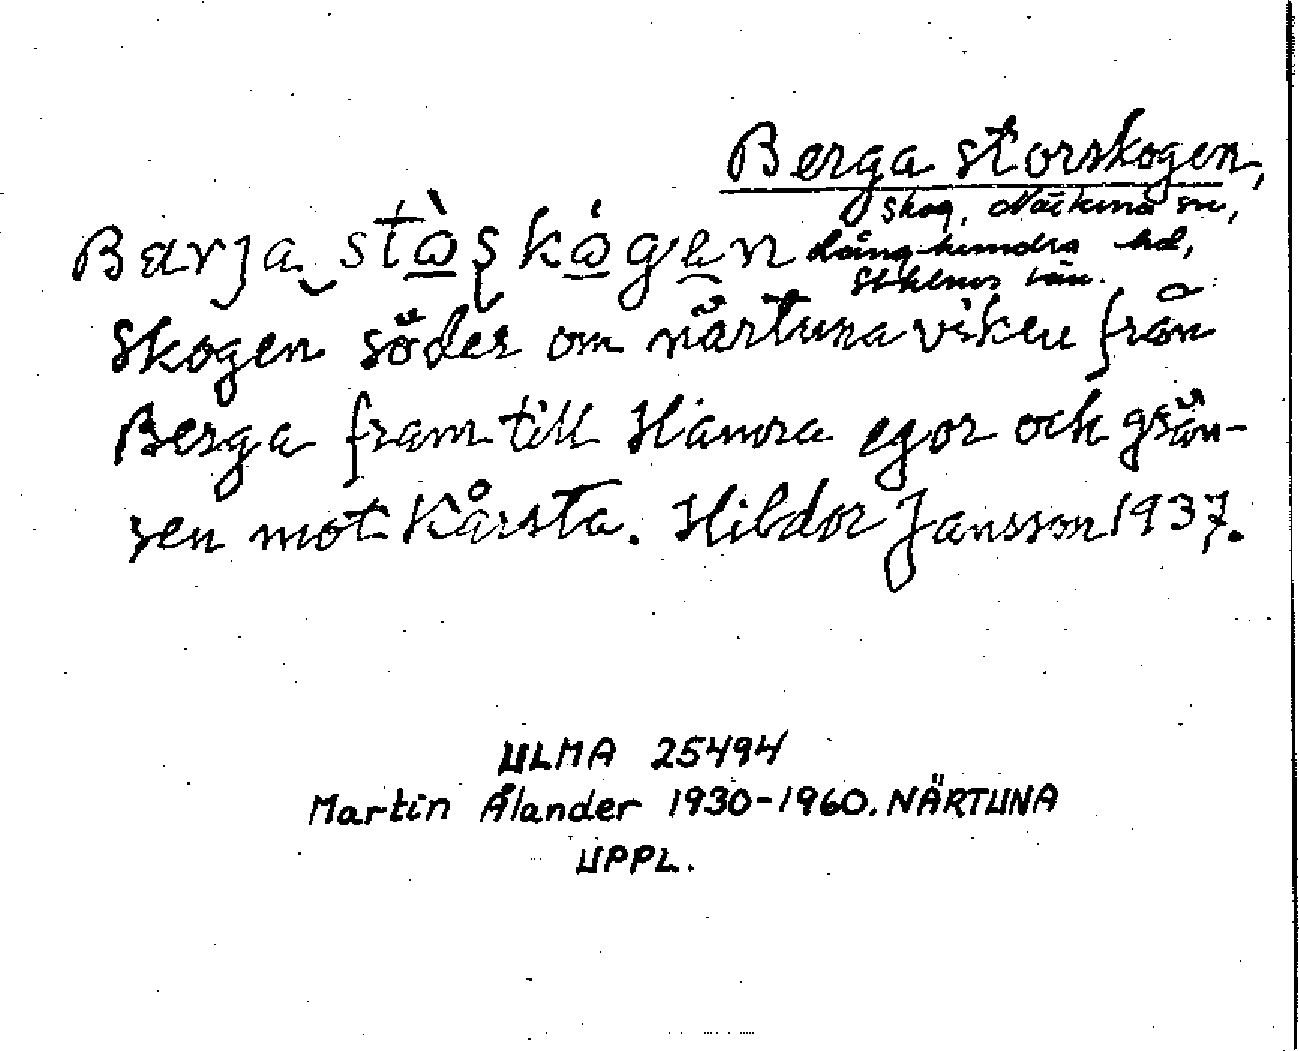 Berga storskogen,
skog, Närtuna sn,
Långhundra hd,
Sthlms län.
Barja stòskógen
Skogen söder om närtuna viken från
Berga fram till Hamra egor och grän-
sen mot Kårsta. Hildor Jansson 1937.
ULMA 25494
Martin Ålander 1930-1960. NÄRTUNA
UPPL.